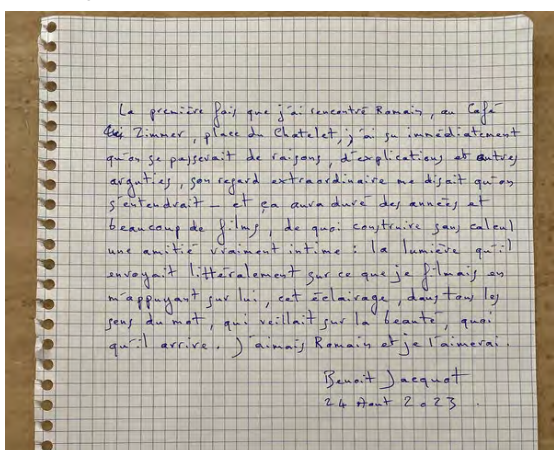 La première fois que j'ai rencontré Romain, au Café
Zimmer, place du Chatelet, j'ai su immédiatement
qu'on se passerait de raisons, d'explications et autres
arguties, son regard extraordinaire me disait qu'on
s'entendrait – et ça aura duré des années et
beaucoup de films, de quoi construire sans calcul
une amitié vraiment intime : la lumière qu'il
envoyait littéralement sur ce que je filmais en
m'appuyant sur lui, cet éclairage, dans tous les
sens du mot, qui veillait sur la beauté, quoi
qu'il arrive. J'aimais Romain et je l'aimerai.
Benoit Jacquot
24 Aout 2023.